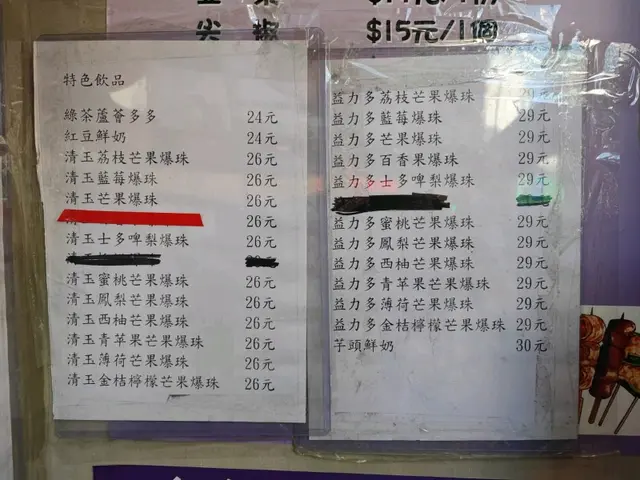 尖 椒 $15元/1個
特色飲品
綠茶蘆薈多多 24元
紅豆鮮奶 24元
清玉荔枝芒果爆珠 26元
清玉藍莓爆珠 26元
清玉芒果爆珠 26元
26元
清玉士多啤梨爆珠 26元
清玉蜜桃芒果爆珠 26元
清玉鳳梨芒果爆珠 26元
清玉西柚芒果爆珠 26元
清玉青苹果芒果爆珠 26元
清玉薄荷芒果爆珠 26元
清玉金桔檸檬芒果爆珠 26元
益力多荔枝芒果爆珠 29元
益力多藍莓爆珠 29元
益力多芒果爆珠 29元
益力多百香果爆珠 29元
益力多士多啤梨爆珠 29元
益力多蜜桃芒果爆珠 29元
益力多鳳梨芒果爆珠 29元
益力多西柚芒果爆珠 29元
益力多青苹果芒果爆珠 29元
益力多薄荷芒果爆珠 29元
益力多金桔檸檬芒果爆珠 29元
芋頭鮮奶 30元